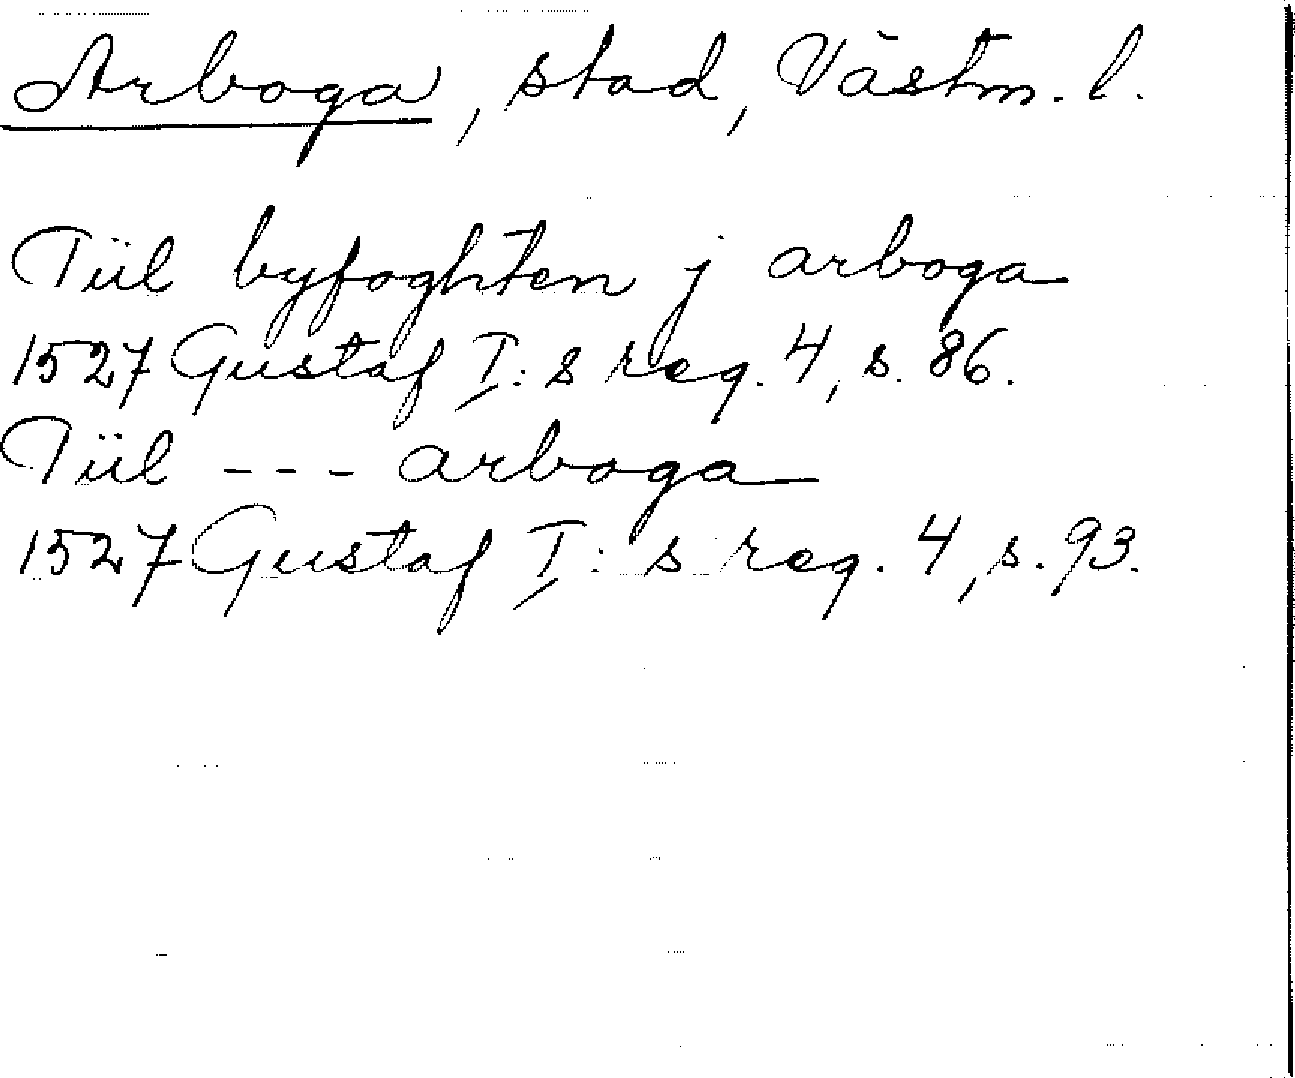 Arboga, stad, Västm. l.
Tiil byfoghten j arboga
1527 Gustaf I:s reg. 4, s. 86.
Tiil --- arboga
1527 Gustaf I:s reg. 4, s. 93.